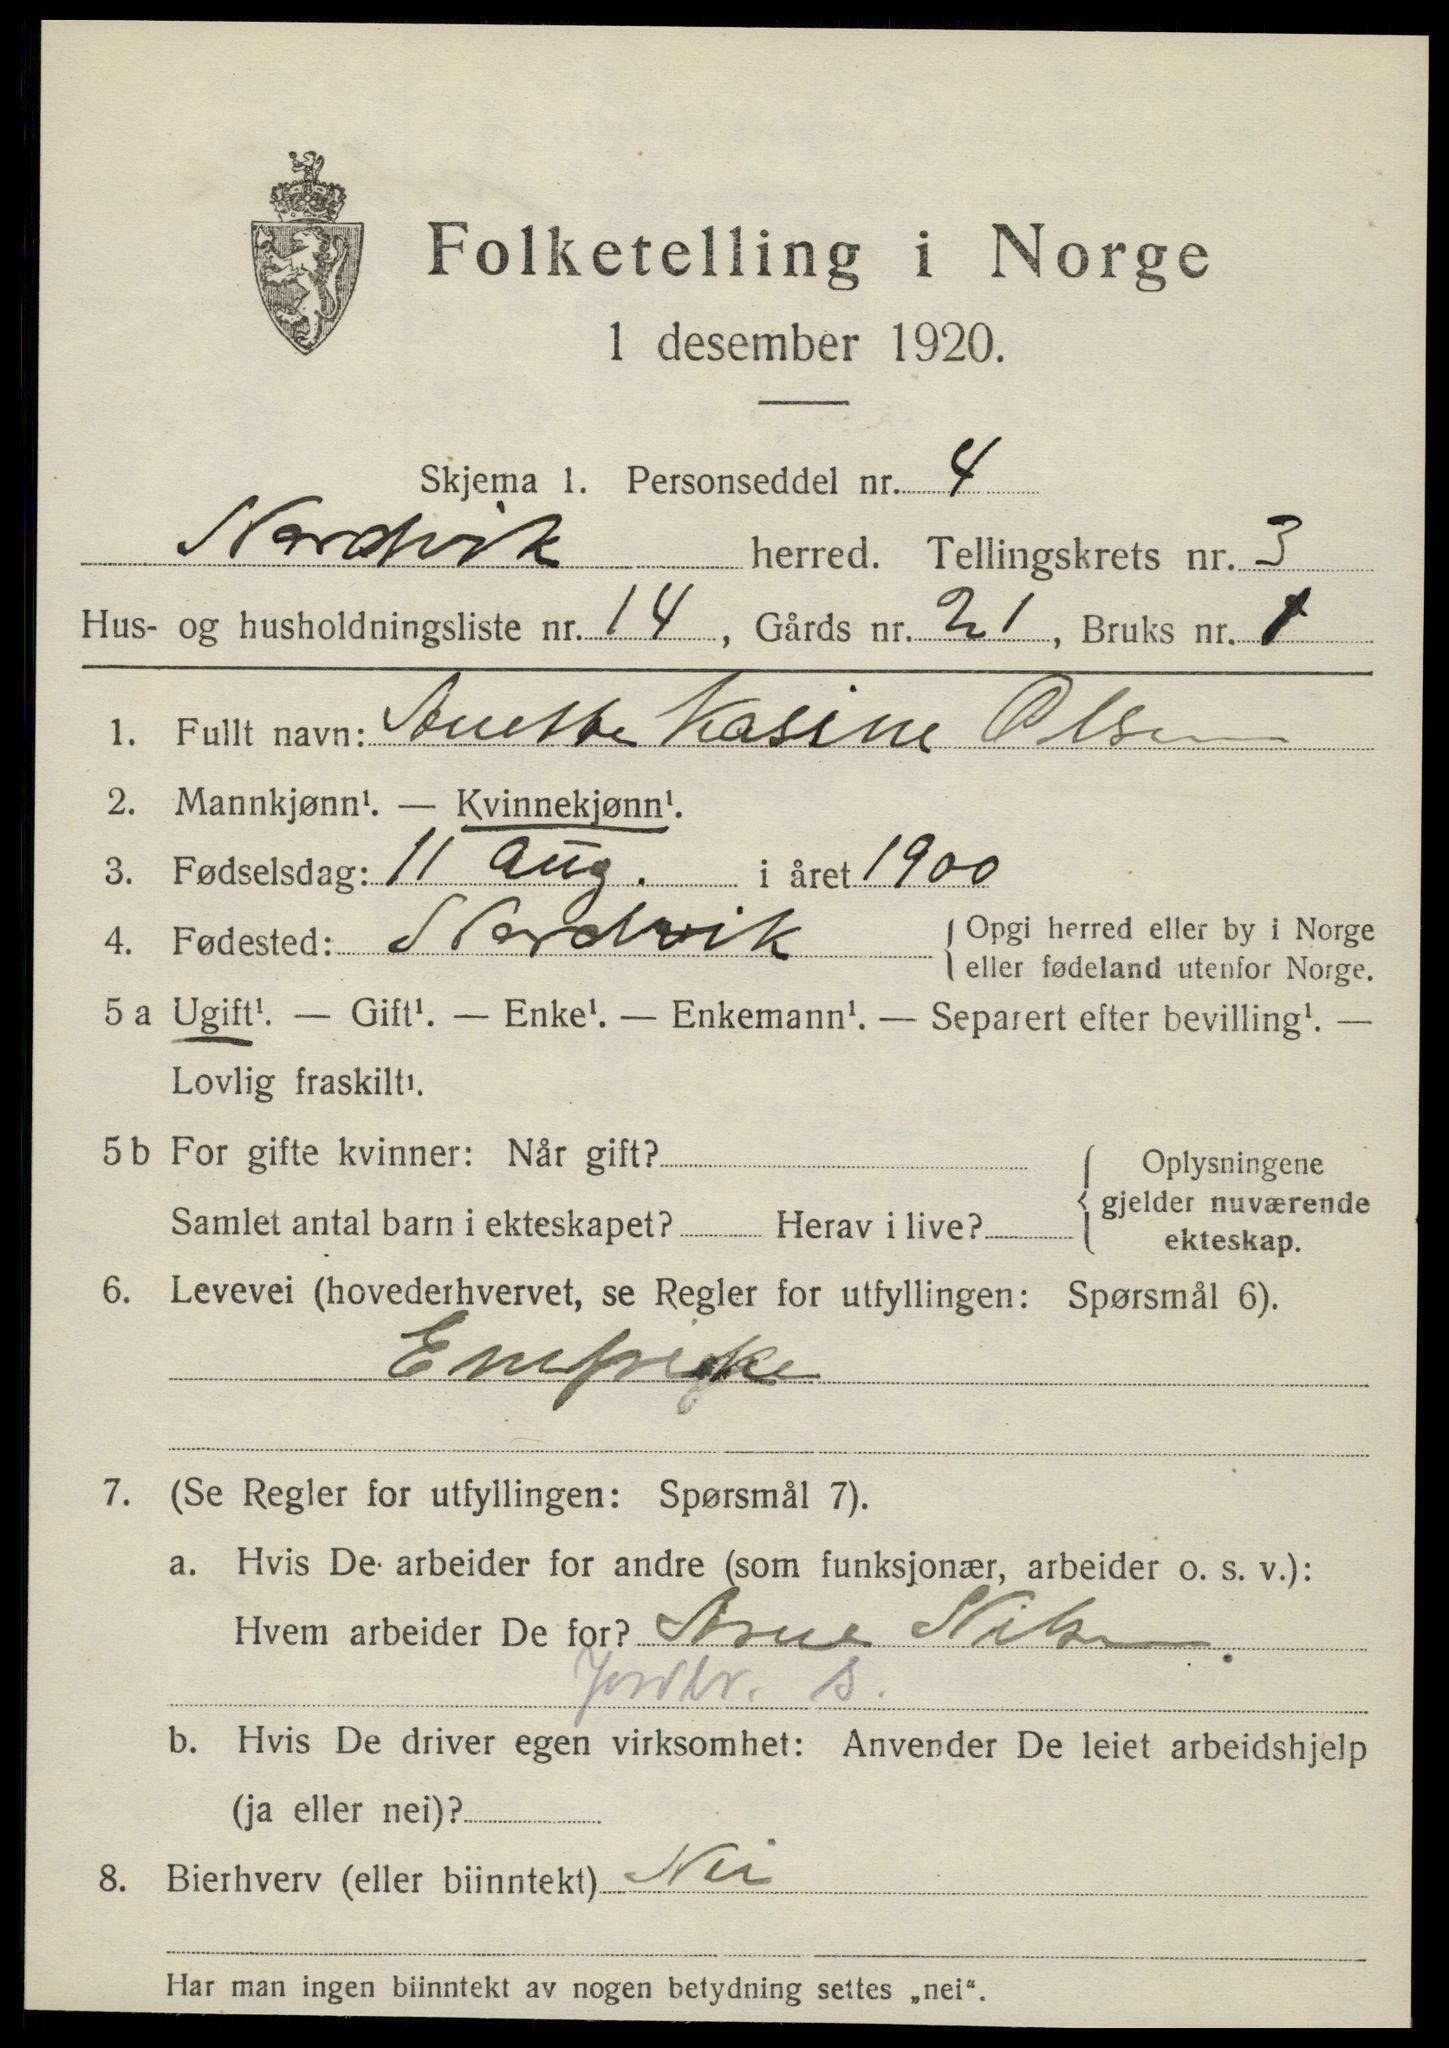 Folketelling i Norge
1 desember 1920.
Skjema 1. Personseddel nr. 4
Nordvik herred. Tellingskrets nr. 3
Hus- og husholdningsliste nr. 14, Gårds nr. 21, Bruks nr. 1
1. Fullt navn: Anette Kasine Olsen
2. Mannkjønn¹. — Kvinnekjønn¹.
3. Fødselsdag: 11 aug. i året 1900
4. Fødested: Nordvik { Opgi herred eller by i Norge
eller fødeland utenfor Norge.
5 a Ugift¹. — Gift¹. — Enke¹. — Enkemann¹. — Separert efter bevilling¹. —
Lovlig fraskilt¹.
5 b For gifte kvinner: Når gift?
Samlet antal barn i ekteskapet? Herav i live?
{ Oplysningene
gjelder nuværende
ekteskap.
6. Levevei (hovederhvervet, se Regler for utfyllingen: Spørsmål 6).
7. (Se Regler for utfyllingen: Spørsmål 7).
a. Hvis De arbeider for andre (som funksjonær, arbeider o. s. v.):
Hvem arbeider De for? Arne Nilsen.
Jordbr. s.
b. Hvis De driver egen virksomhet: Anvender De leiet arbeidshjelp
(ja eller nei)?
8. Bierhverv (eller biinntekt) Nei
Har man ingen biinntekt av nogen betydning settes „nei“.